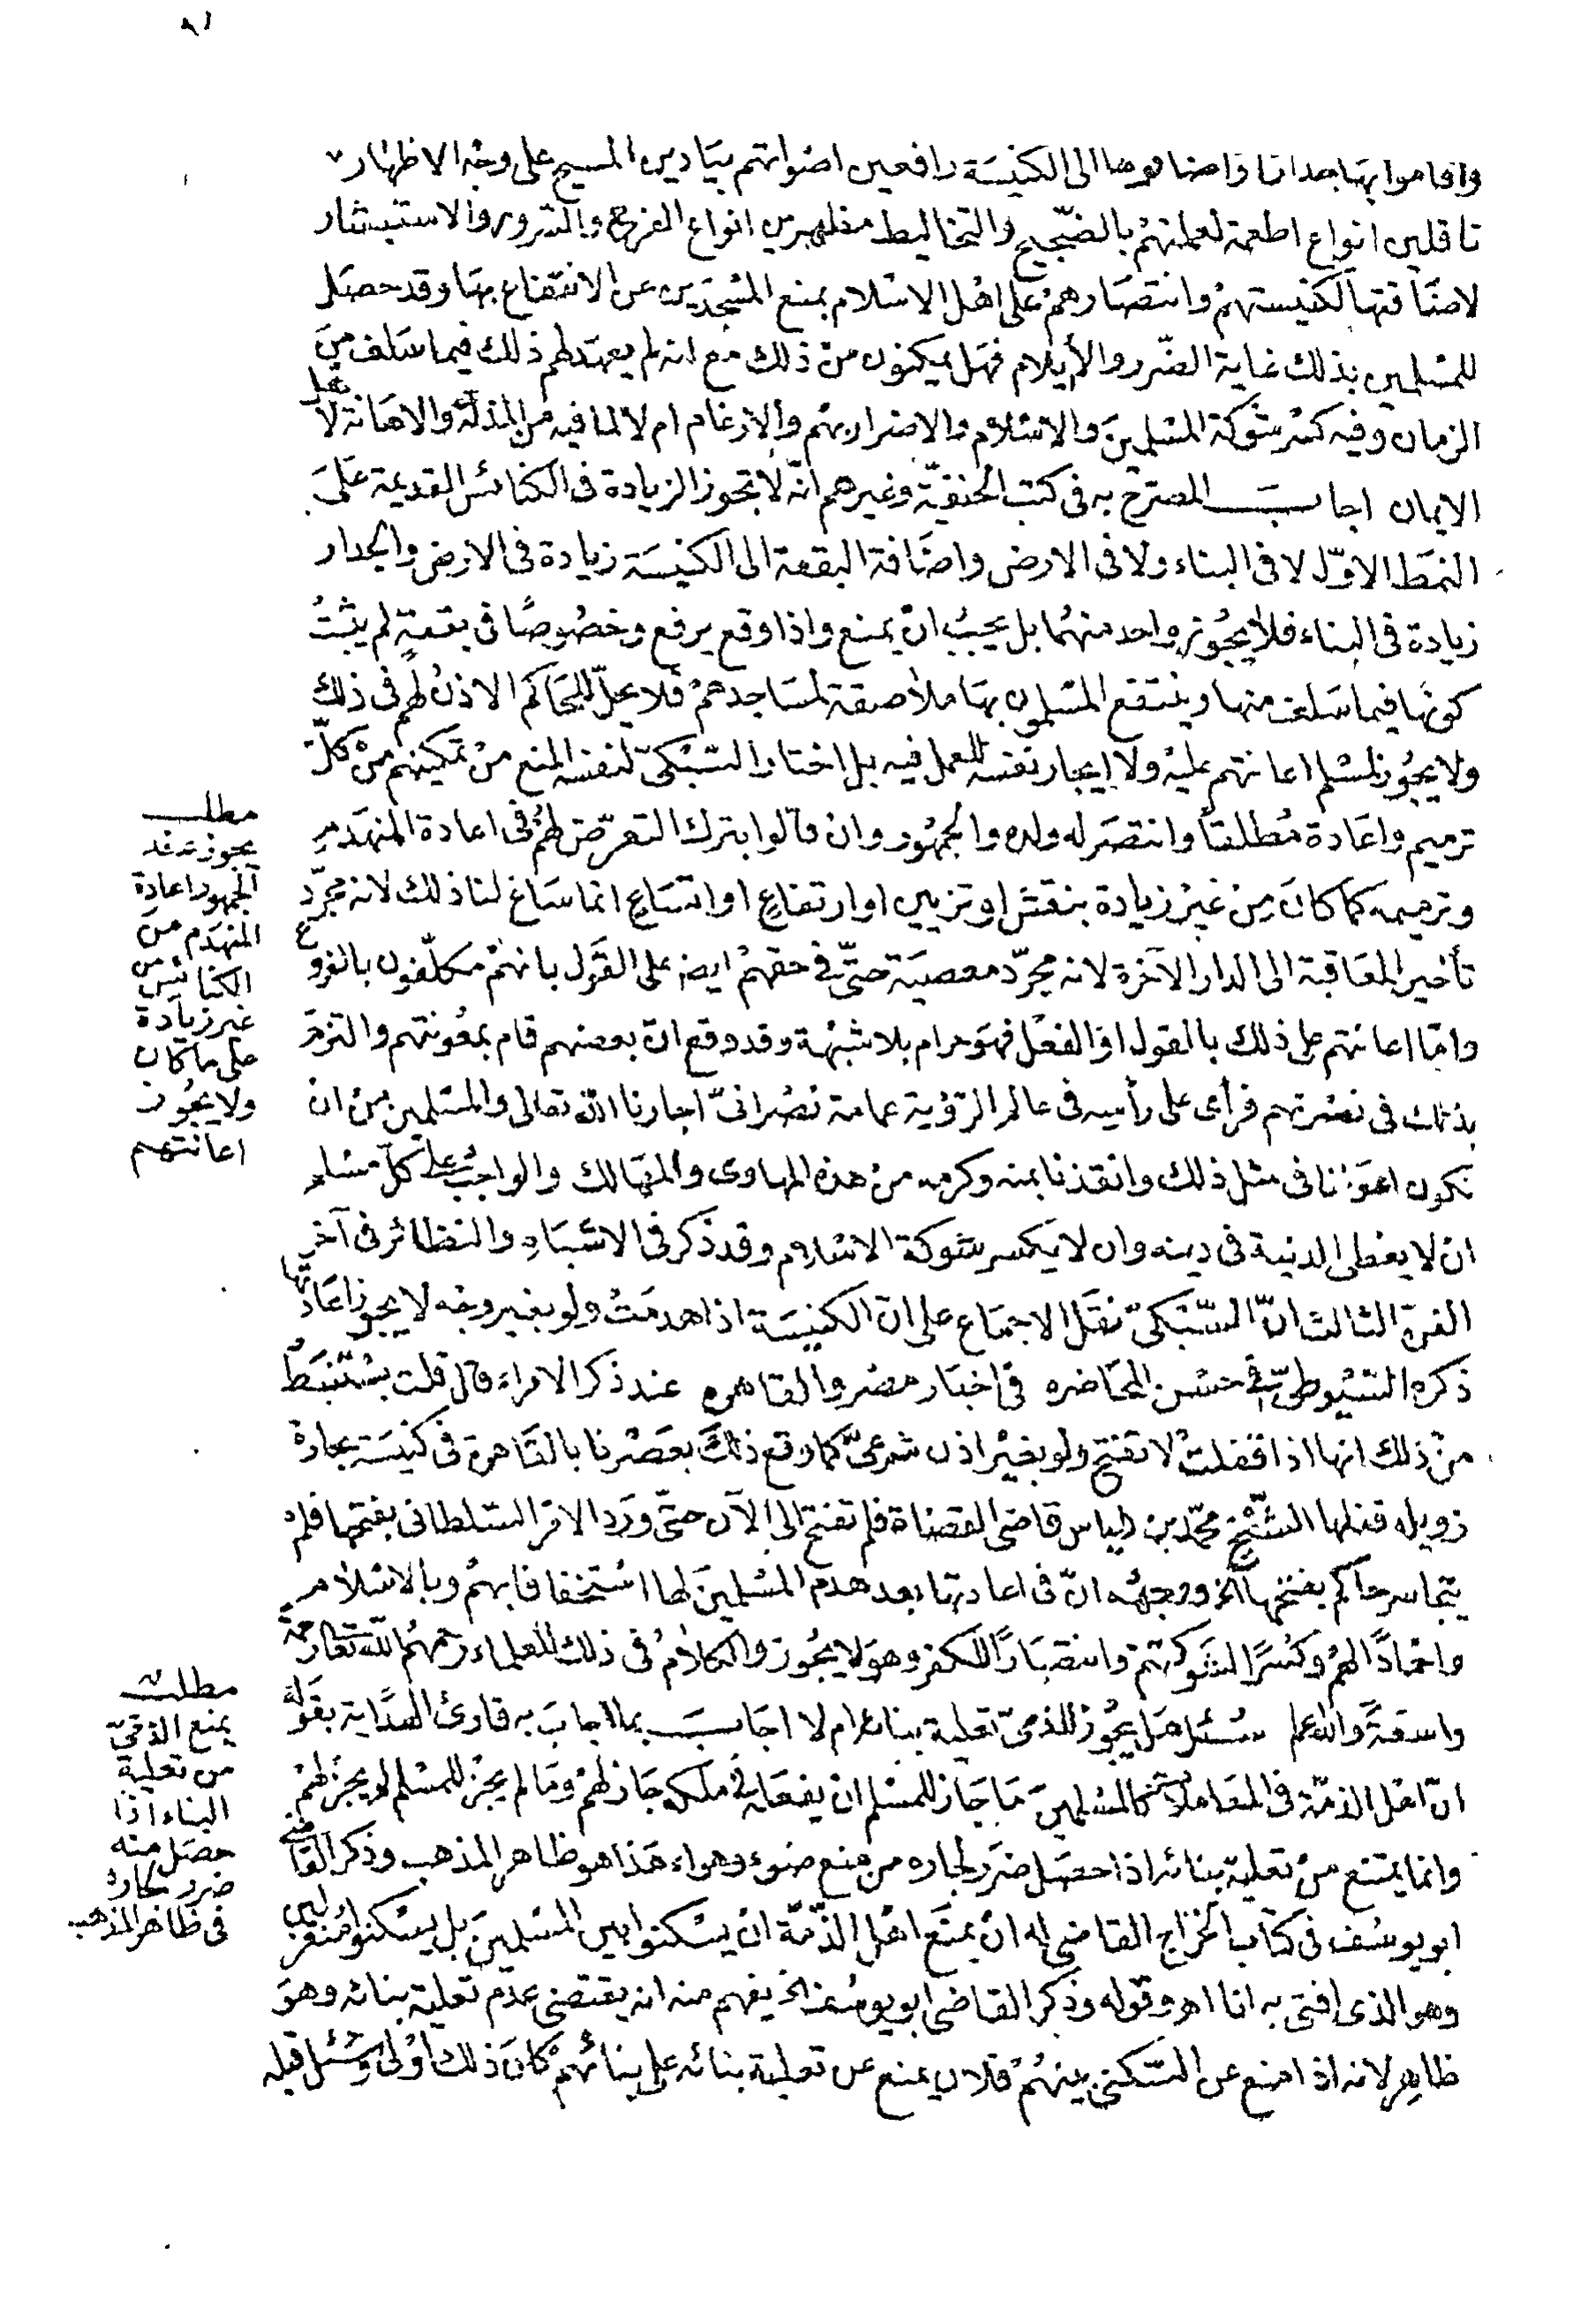 واقاموا بها جدارا واضافوها الى الكنيسة رافعين اصواتهم بيا دين المسيح على وجه الاظهار
ناقلين انواع اطعمة لعملتهم بالضجيج والتخاليط مظهرين انواع الفرح والسرور والاستبشار
لاضافتها لكنيستهم وانتصارهم على اهل الاسلام بمنع المسجدين عن الانتفاع بها وقد حصل
للمسلمين بذلك غاية الضرر والايلام فهل يمكنون من ذلك مع انه لم يعهد لهم ذلك فيما سلف من
الزمان وفيه كسر شوكة المسلمين والاسلام والاضرار بهم والارغام ام لا لما فيه من المذلة والاهانة لاهل
الايمان اجاب المصرح به فى كتب الحنفية وغيرهم انه لا تجوز الزيادة فى الكنائس القديمة على
النمط الاول لا فى البناء ولا فى الارض واضافة البقعة الى الكنيسة زيادة فى الارض والجدار
زيادة فى البناء فلا يجوز واحد منهما بل يجب ان يمنع واذا وقع يرفع وخصوصا فى بقعة لم يثبت
كونها فيما سلف منها وينتفع المسلمون بها ملاصقة لمساجدهم فلا يحل للحاكم الاذن لهم فى ذلك
ولا يجوز لمسلم اعانتهم عليه ولا ايجار نفسه للعمل فيه بل اختار السبكى لنفسه المنع من تمكينهم من كل
ترميم واعادة مطلقا وانتصر له ولده والجمهور وان قالوا بترك التعرض لهم فى اعادة المنهدم
وترميمه كما كان من غير زيادة بنقش او تزيين او ارتفاع او اتساع انما ساغ لنا ذلك لانه مجرد
تأخير المعاقبة الى الدار الآخرة لانه مجرد معصية حتى فى حقهم ايضا على القول بانهم مكلفون بالفروع
واما اعانتهم على ذلك بالقول او الفعل فهو حرام بلا شبهة وقد وقع ان بعضهم قام بمعونتهم والتزم
بذلك فى نصرتهم فرأى على رأسه فى عالم الرؤية عمامة نصرانى اجارنا الله تعالى والمسلمين من ان
نكون اعوانا فى مثل ذلك وانقذنا بمنه وكرمه من هذه المهاوى والمهالك والواجب على كل مسلم
ان لا يعطى الدنية فى دينه وان لا يكسر شوكة الاسلام وقد ذكر فى الاشباه والنظائر فى آخر
الفن الثالث ان السبكى نقل الاجماع على ان الكنيسة اذا هدمت ولو بغير وجه لا يجوز اعادتها
ذكره السيوطى فى حسن المحاضره فى اخبار مصر والقاهره عند ذكر الامراء قال قلت يستنبط
من ذلك انها اذا قفلت لا تفتح ولو بغير اذن شرعى كما وقع ذلك بعصرنا بالقاهرة فى كنيسة بحارة
زويله قفلها الشيخ محمد بن الياس قاضى القضاة فلم تفتح الى الآن حتى ورد الامر السلطانى بفتحها فلم
يتجاسر حاكم بفتحها الخ ووجهه ان فى اعادتها بعد هدم المسلمين لها استخفافا بهم وبالاسلام
واخمادا لهم وكسرا لشوكتهم وانتصارا للكفر وهو لا يجوز والكلام فى ذلك للعلماء رحمهم الله تعالى رحمة
واسعة والله اعلم سئل هل يجوز للذمى تعلية بنائه ام لا اجاب بما اجاب به قارئ الهداية بقوله
ان اهل الذمة فى المعاملات كالمسلمين ما جاز للمسلم ان يفعله فى ملكه جاز لهم وما لم يجز للمسلم لم يجز لهم
وانما يمتنع من تعلية بنائه اذا حصل ضرر لجاره من منع ضوء وهواء هذا هو ظاهر المذهب وذكر القاضى
ابو يوسف فى كتاب الخراج القاضى له ان يمنع اهل الذمة ان يسكنوا بين المسلمين بل يسكنوا منعزلين
وهو الذى افتى به انا اهـ وقوله وذكر القاضى ابو يوسف الخ يفهم منه انه يقتضى عدم تعلية بنائه وهو
ظاهر لانه اذا منع عن السكنى بينهم فلان يمنع عن تعلية بنائه على بنائهم كان ذلك اولى وسئل قبله
مطلب
يجوز عند
الجمهور اعادة
المنهدم من
الكنائس من
غير زيادة
على ما كان
ولا يجوز
اعانتهم
مطلب
يمنع الذمى
من تعلية
البناء اذا
حصل منه
ضرر لجاره
فى ظاهر المذهب